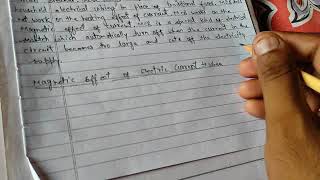 household electrical wiring in place of traditional fuses. MCB does
not work on the heating effect of current. MCB work on the
Magnetic effect of current. MCB is a special kind of electrical
switch which automatically turn off when the current in the
circuit becomes too large and cuts off the electricity
supply.
Magnetic Effect of Electric Current + when